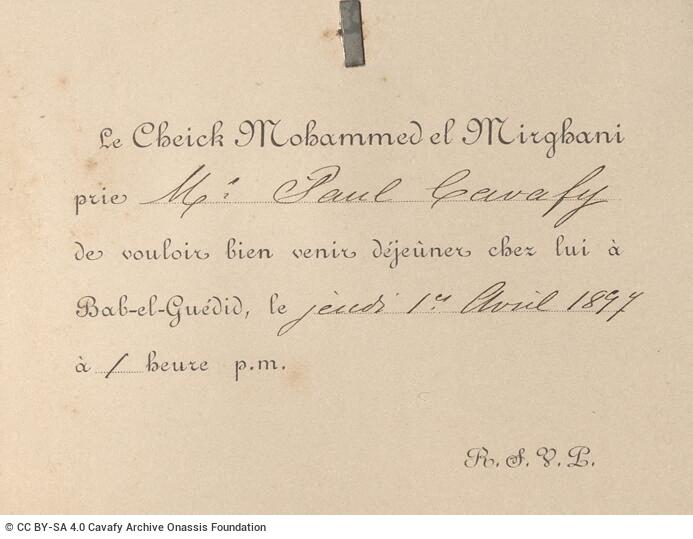 Le Cheick Mohammed el Mirghani
prie Mr. Paul Cavafy
de vouloir bien venir déjeûner chez lui à
Bab-el-Guédid, le jeudi 1er Avril 1897
à 1 heure p.m.
R. S. V. P.
© CC BY-SA 4.0 Cavafy Archive Onassis Foundation